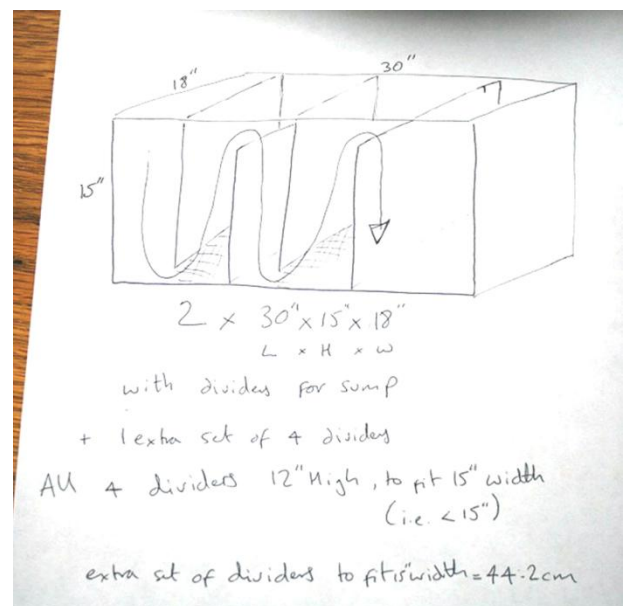 18"
30"
15"
2 x 30" x 15" x 18"
L x H x W
with dividers for sump
+ 1 extra set of 4 dividers
All 4 dividers 12" High, to fit 15" width
(i.e. < 15")
extra set of dividers to fit 15" width = 44.2cm